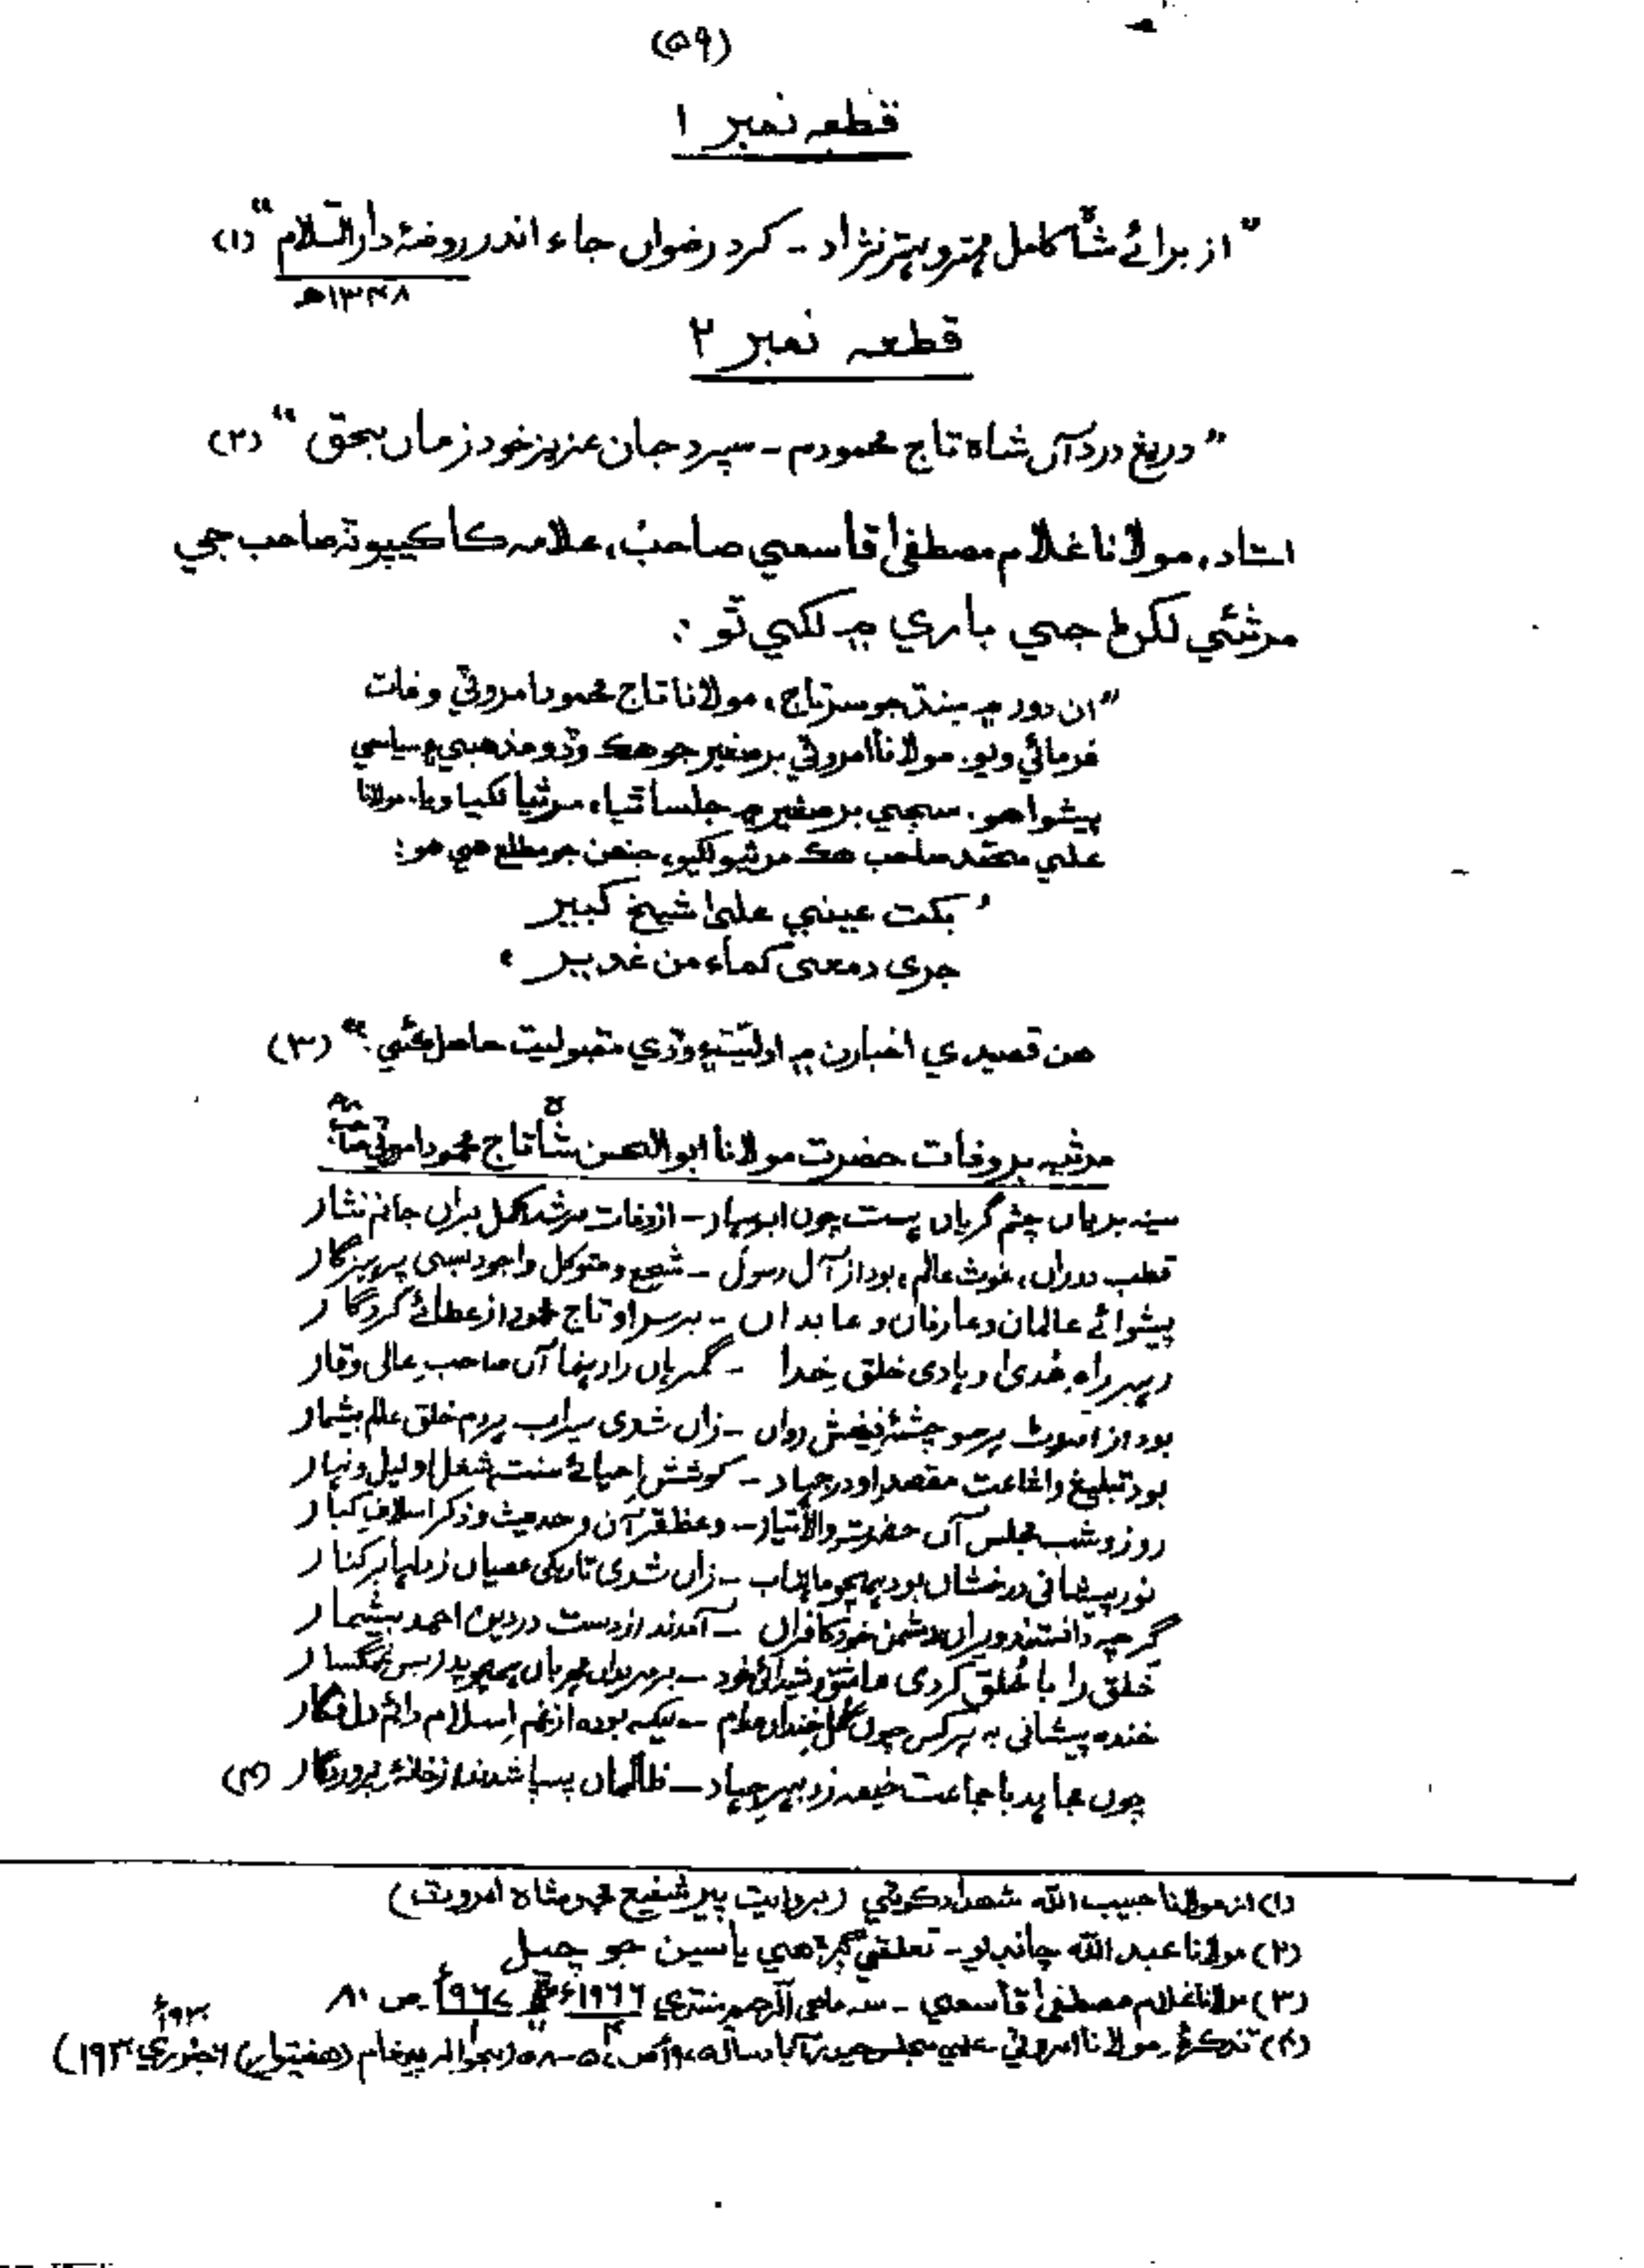 (۵۹)
قطعہ نمبر ۱
”از برائے شاہؒ کامل مہتر و بہتر نژاد - کرد رضواں جاء اندر روضۂ دارالسّلام“ (۱)
۱۳۴۸ھ
قطعہ نمبر ۲
”دریغ درد آں شاہ تاج محمودم - سپرد جان عزیز خود زماں بحق“ (۲)
استاد، مولانا غلام مصطفیٰ قاسمي صاحبؒ، علامہ کاکیپوٽہ صاحب جي
مرثئي لکڻ جي باري ۾ لکي ٿو :
”ان دور ۾ سنڌ جو سرتاج، مولانا تاج محمود امروٽي وفات
فرمائي ويو. مولانا امروٽي برصغير جو هڪ وڏو مذهبي ۽ سياسي
پيشوا هو. سڄي برصغير ۾ جلسا ٿيا، مرثيا لکيا ويا. مولانا
علي محمد صاحب هڪ مرثيو لکيو، جنهن جو مطلع هي هو:
’ بکت عيني علیٰ شيخ کبير
جری دمعی کماء من غدير ‘
هن قصيدي اخبارن ۾ اوليت ۽ وڏي مقبوليت حاصل ڪئي.“ (۳)
مرثيہ بر وفات حضرت مولانا ابوالحسن شاہؒ تاج محمود امروٽي
سینہ بریاں چشم گریاں ہست چوں ابر بہار - از وفات مرشد اکمل براں جانم نثار
قطب دوراں، غوث عالم، بود از آل رسولؐ - شجیع و متوکل واجود بسی پرہیزگار
پیشوائے عالمان و عارفان و عابداں - بر سر او تاج محمود از عطائے کردگار
رہبر راہ ھُدیٰ و ہادی خلق خدا - گمرہاں را رہنما آں صاحب عالی وقار
بود از امروٹ ہر سو چشمۂ فیضش رواں - زاں شدی سیراب ہر دم خلق عالم بیشمار
بود تبلیغ و اشاعت مقصد او در جہاد - کوشش احیائے سنت شغل او لیل و نہار
روز و شب مجلس آں حضرت والا تبار - وعظ قرآن و حدیث و ذکر اسلاف کبار
نور پیشانی درخشاں بود ہمچو ماہتاب - زاں شدی تاریکی عصیاں ز دلہا بر کنار
گرچہ دانستند ویراں دشمن خود کافراں - آمدند از دست در دین احمد بیشمار
خلق را با خُلق کردی عاشق و شیدائے خود - بر مریداں مہرباں ہمچو پدر بس غمگسار
خندہ پیشانی بہ ہر کس چوں گل خنداں مدام - لیکہ بودہ از غم اسلام دائم دل فگار
چوں مجاہد با جماعت خیمہ زد بہر جہاد - ظالماں پسپا شدند از خانۂ پروردگار (۴)
(۱) از مولانا حبيب اللہ شھدادکوٽي (بروايت پير شفيع محمد شاہ امروٽ)
(۲) مولانا عبداللہ چانڊيو - تعلقي ڳڙهي ياسين جو چيل
(۳) مولانا غلام مصطفیٰ قاسمي - سہ ماهي الرحيم منتري ۱۹۶۶ع ۱۹۶۷ع ص ۸۰
(۴) تذڪرہ مولانا امروٽي - علمي مجلس حيدرآباد (بحوالہ پيغام (هفتيوار) ۶ جنوري ۱۹۳۰)